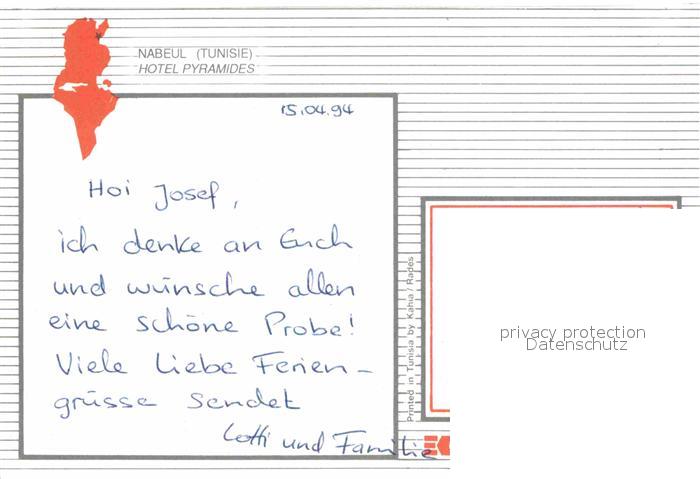 NABEUL (TUNISIE)
HOTEL PYRAMIDES
15.04.94
Hoi Josef,
ich denke an Euch
und wünsche allen
eine schöne Probe!
Viele Liebe Ferien-
grüsse sendet
Lotti und Familie
Printed in Tunisia by Kahia / Rades
privacy protection
Datenschutz